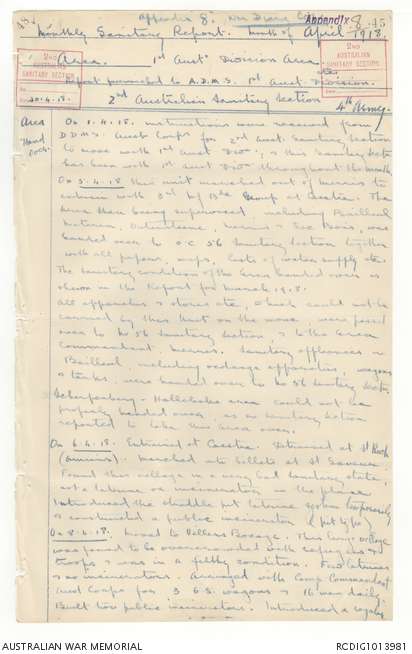 Appendix 8. War Diary
Appendix 8.
Monthly Sanitary Report. Month of April 1918.
2ND AUSTRALIAN SANITARY SECTION
30-4-18.
Area. 1st Aust. Division Area
2ND AUSTRALIAN SANITARY SECTION
Report furnished to A.D.M.S. 1st Aust. Division.
2nd Australian Sanitary Section 4th Army.
Area
Hand
over.
On 1.4.18. instructions were received from
D.D.M.S. Aust Corps for 2nd Aust. Sanitary Section
to move with 1st Aust Divn., & this Sanitary Sectn
has been with 1st Aust Divn throughout the month
On 5.4.18 this unit marched out of
entrain with 3rd Group at Caestre. The
area then being supervised, including Bailleul
Meteren, Outersteene, was
handed over to O.C. 56 Sanitary Section together
with all papers, maps, lists of water supply etc.
The sanitary condition of the area handed over is
shown in the Report for March 1918.
All apparatus & stores etc, which could not be
carried by this Unit on the move, were passed
over to No 56 Sanitary Section, & to the Area
Commandant. Sanitary appliances in
Bailleul, including apparatus, wagons
& tanks, were handed over to No 56 Sanitary Sectn
Scherpenberg - Hallebeke area could not be
properly handed over, as no Sanitary Section
reported to take this area over.
On 6.4.18. Entrained at Caestre. Detrained at St Roch
(Amiens). Marched into billets at St Sauveur.
Found this village in a very bad sanitary state,
not a latrine or incinerator in the place.
Introduced the straddle pit latrine system temporarily
& constructed a public incinerator (pit type)
On 8.4.18. Moved to Villers Bocage. This village
was found to be overcrowded with refugees &
troops & was in a filthy condition. Few latrines
& no incinerators. Arranged with Camp Commandant
Aust Corps for 3 G.S. wagons & 16 men daily.
Built two public incinerators. Introduced a
AUSTRALIAN WAR MEMORIAL
RCDIG1013981